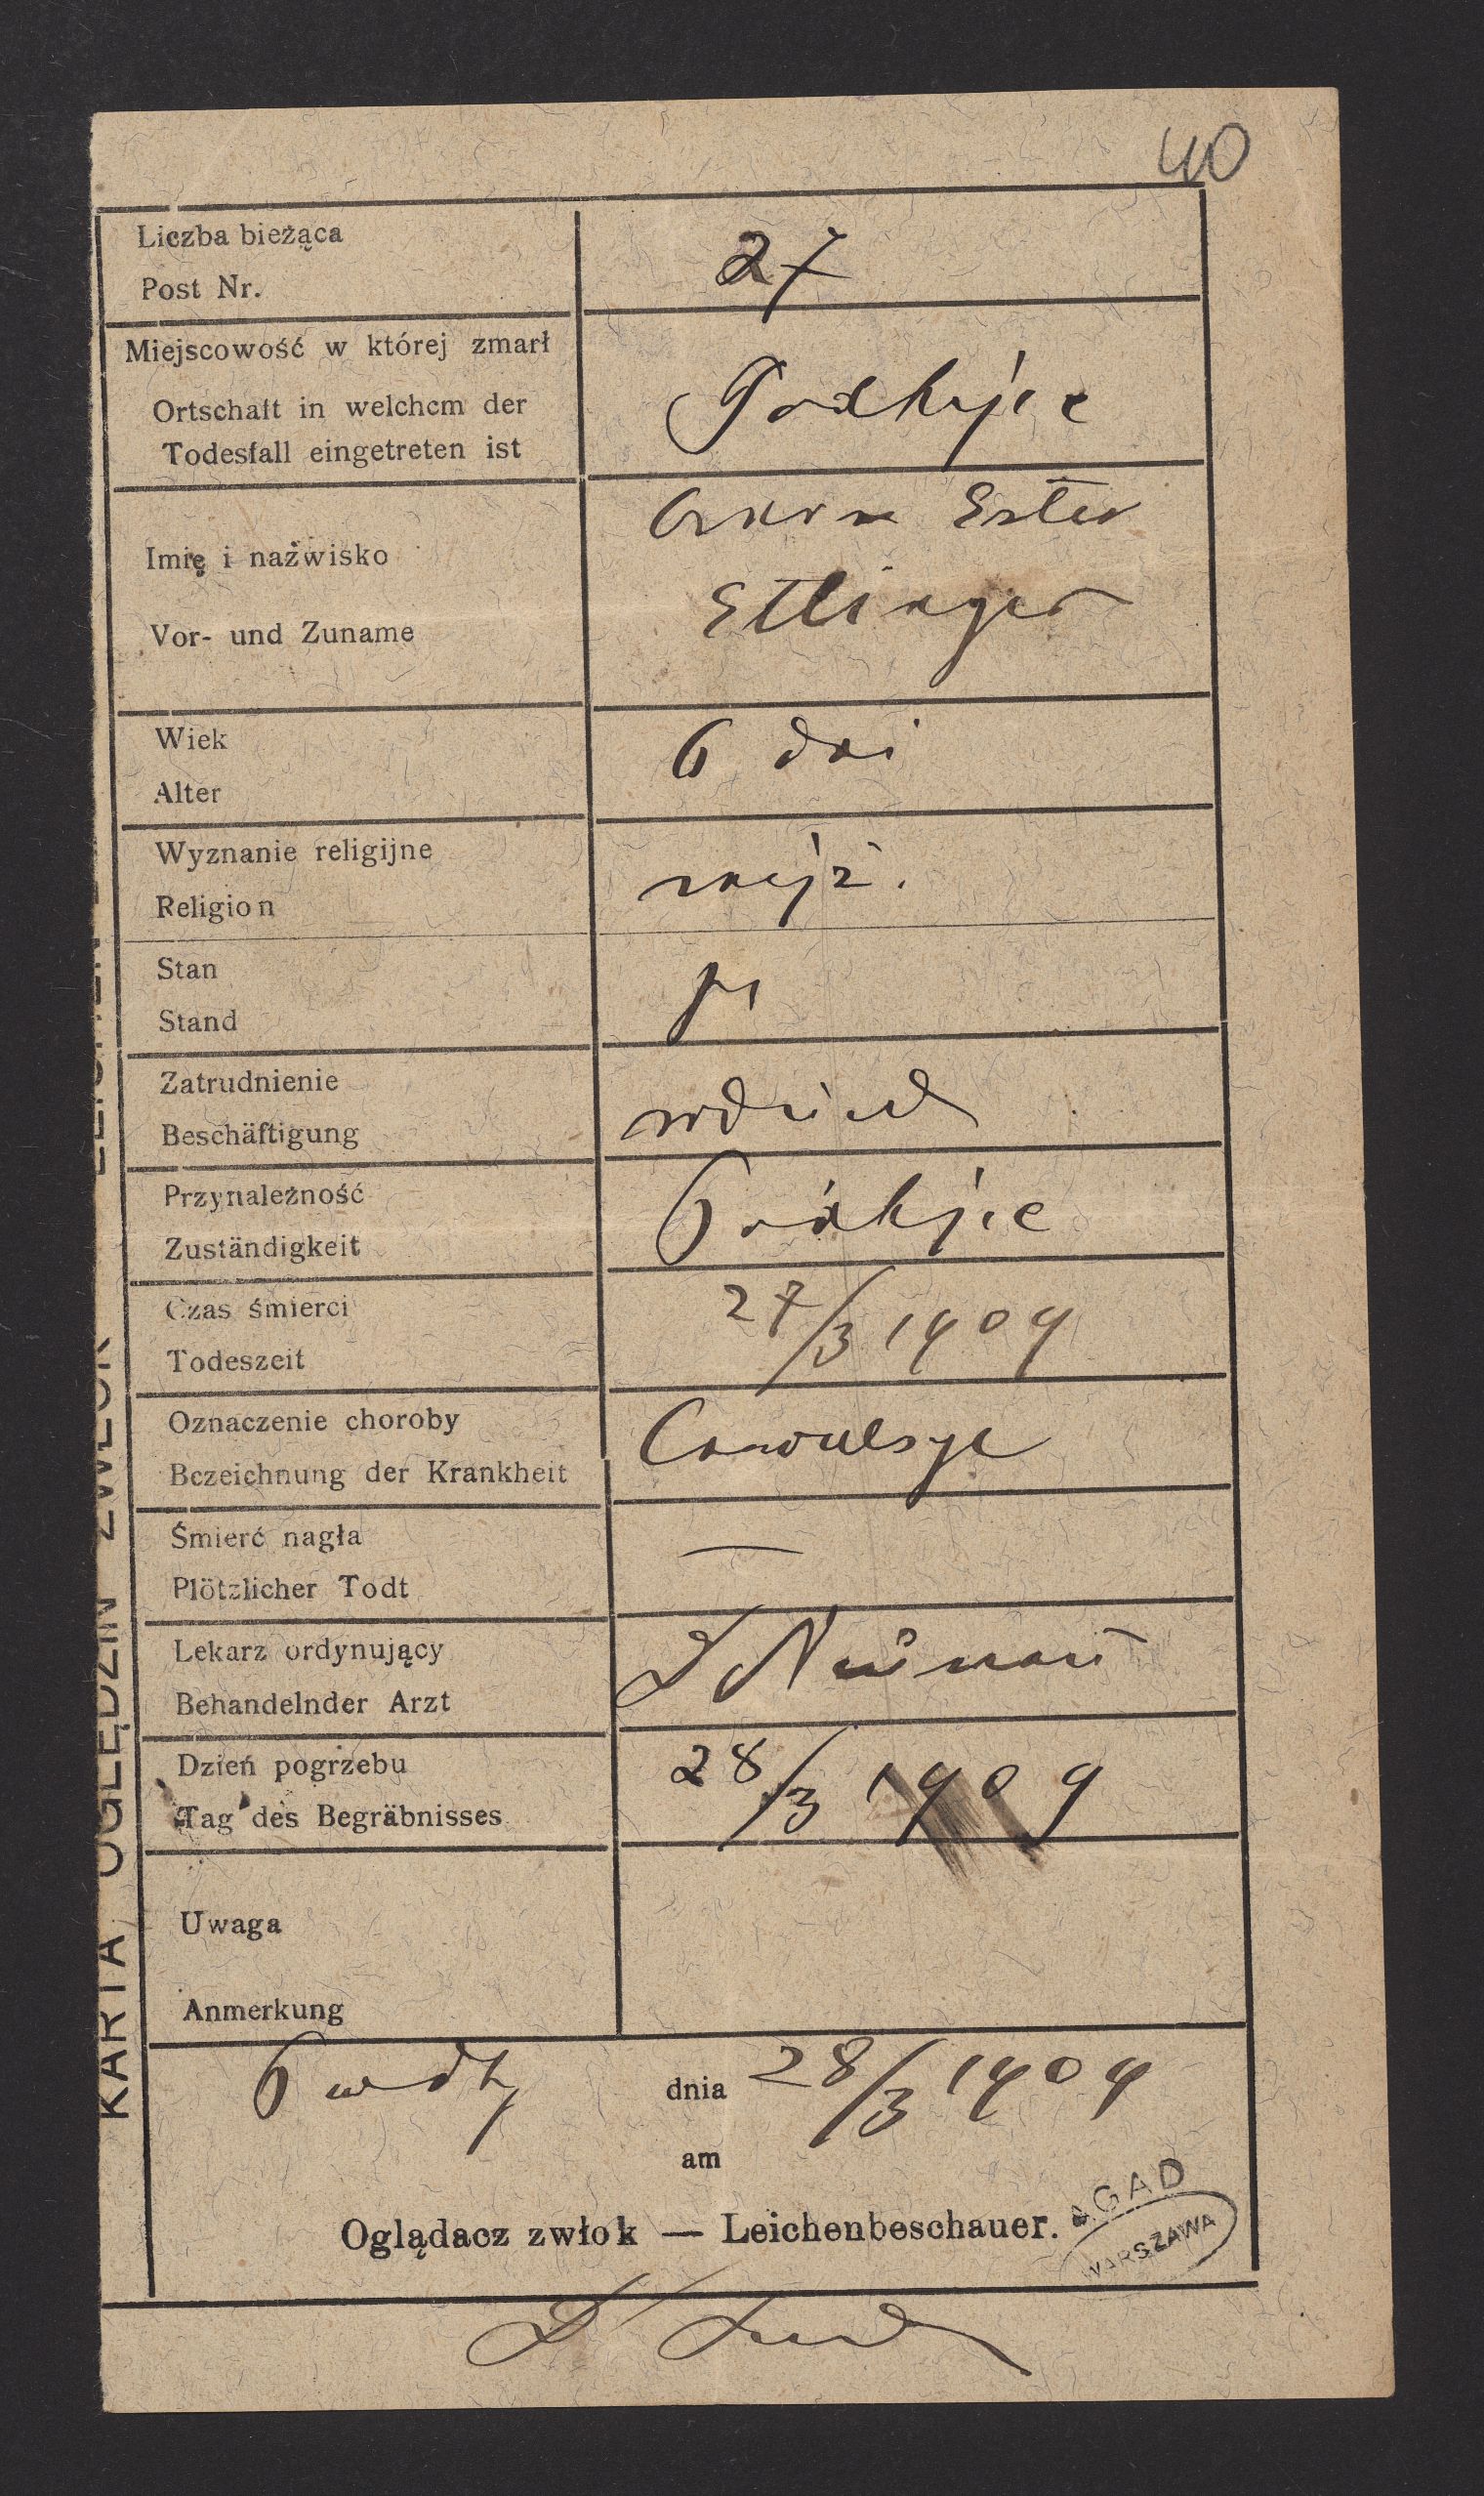 40
Liczba bieżąca
Post Nr.
27
Miejscowość w której zmarł
Ortschaft in welchem der
Todesfall eingetreten ist
Podhajce
Imię i nazwisko
Vor- und Zuname
Ester
Ettinger
Wiek
Alter
6 dni
Wyznanie religijne
Religion
mojż.
Stan
Stand
Zatrudnienie
Beschäftigung
Przynależność
Zuständigkeit
Podhajce
Czas śmierci
Todeszeit
27/3 1909
Oznaczenie choroby
Bezeichnung der Krankheit
Convulsye
Śmierć nagła
Plötzlicher Todt
—
Lekarz ordynujący
Behandelnder Arzt
Dzień pogrzebu
Tag des Begräbnisses
28/3 1909
Uwaga
Anmerkung
dnia 28/3 1909
am
Oglądacz zwłok — Leichenbeschauer.
AGAD
WARSZAWA
KARTA OGLĘDZIN ZWŁOK